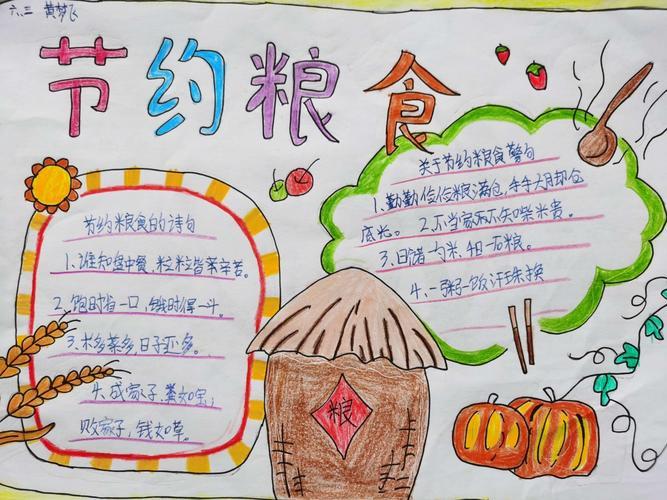 六.三 黄梦飞
节约粮食
节约粮食的诗句
1.谁知盘中餐,粒粒皆辛苦。
2.饱时省一口,饿时得一斗。
3.米多菜多,日子还多。
4.成家子,粪如宝;
败家子,钱如草。
关于节约粮食警句
1.勤勤俭俭粮满仓,大手大脚仓
底光。2.不当家不知柴米贵。
3.日储一勺米,年
4.一粥一饭汗珠换
粮